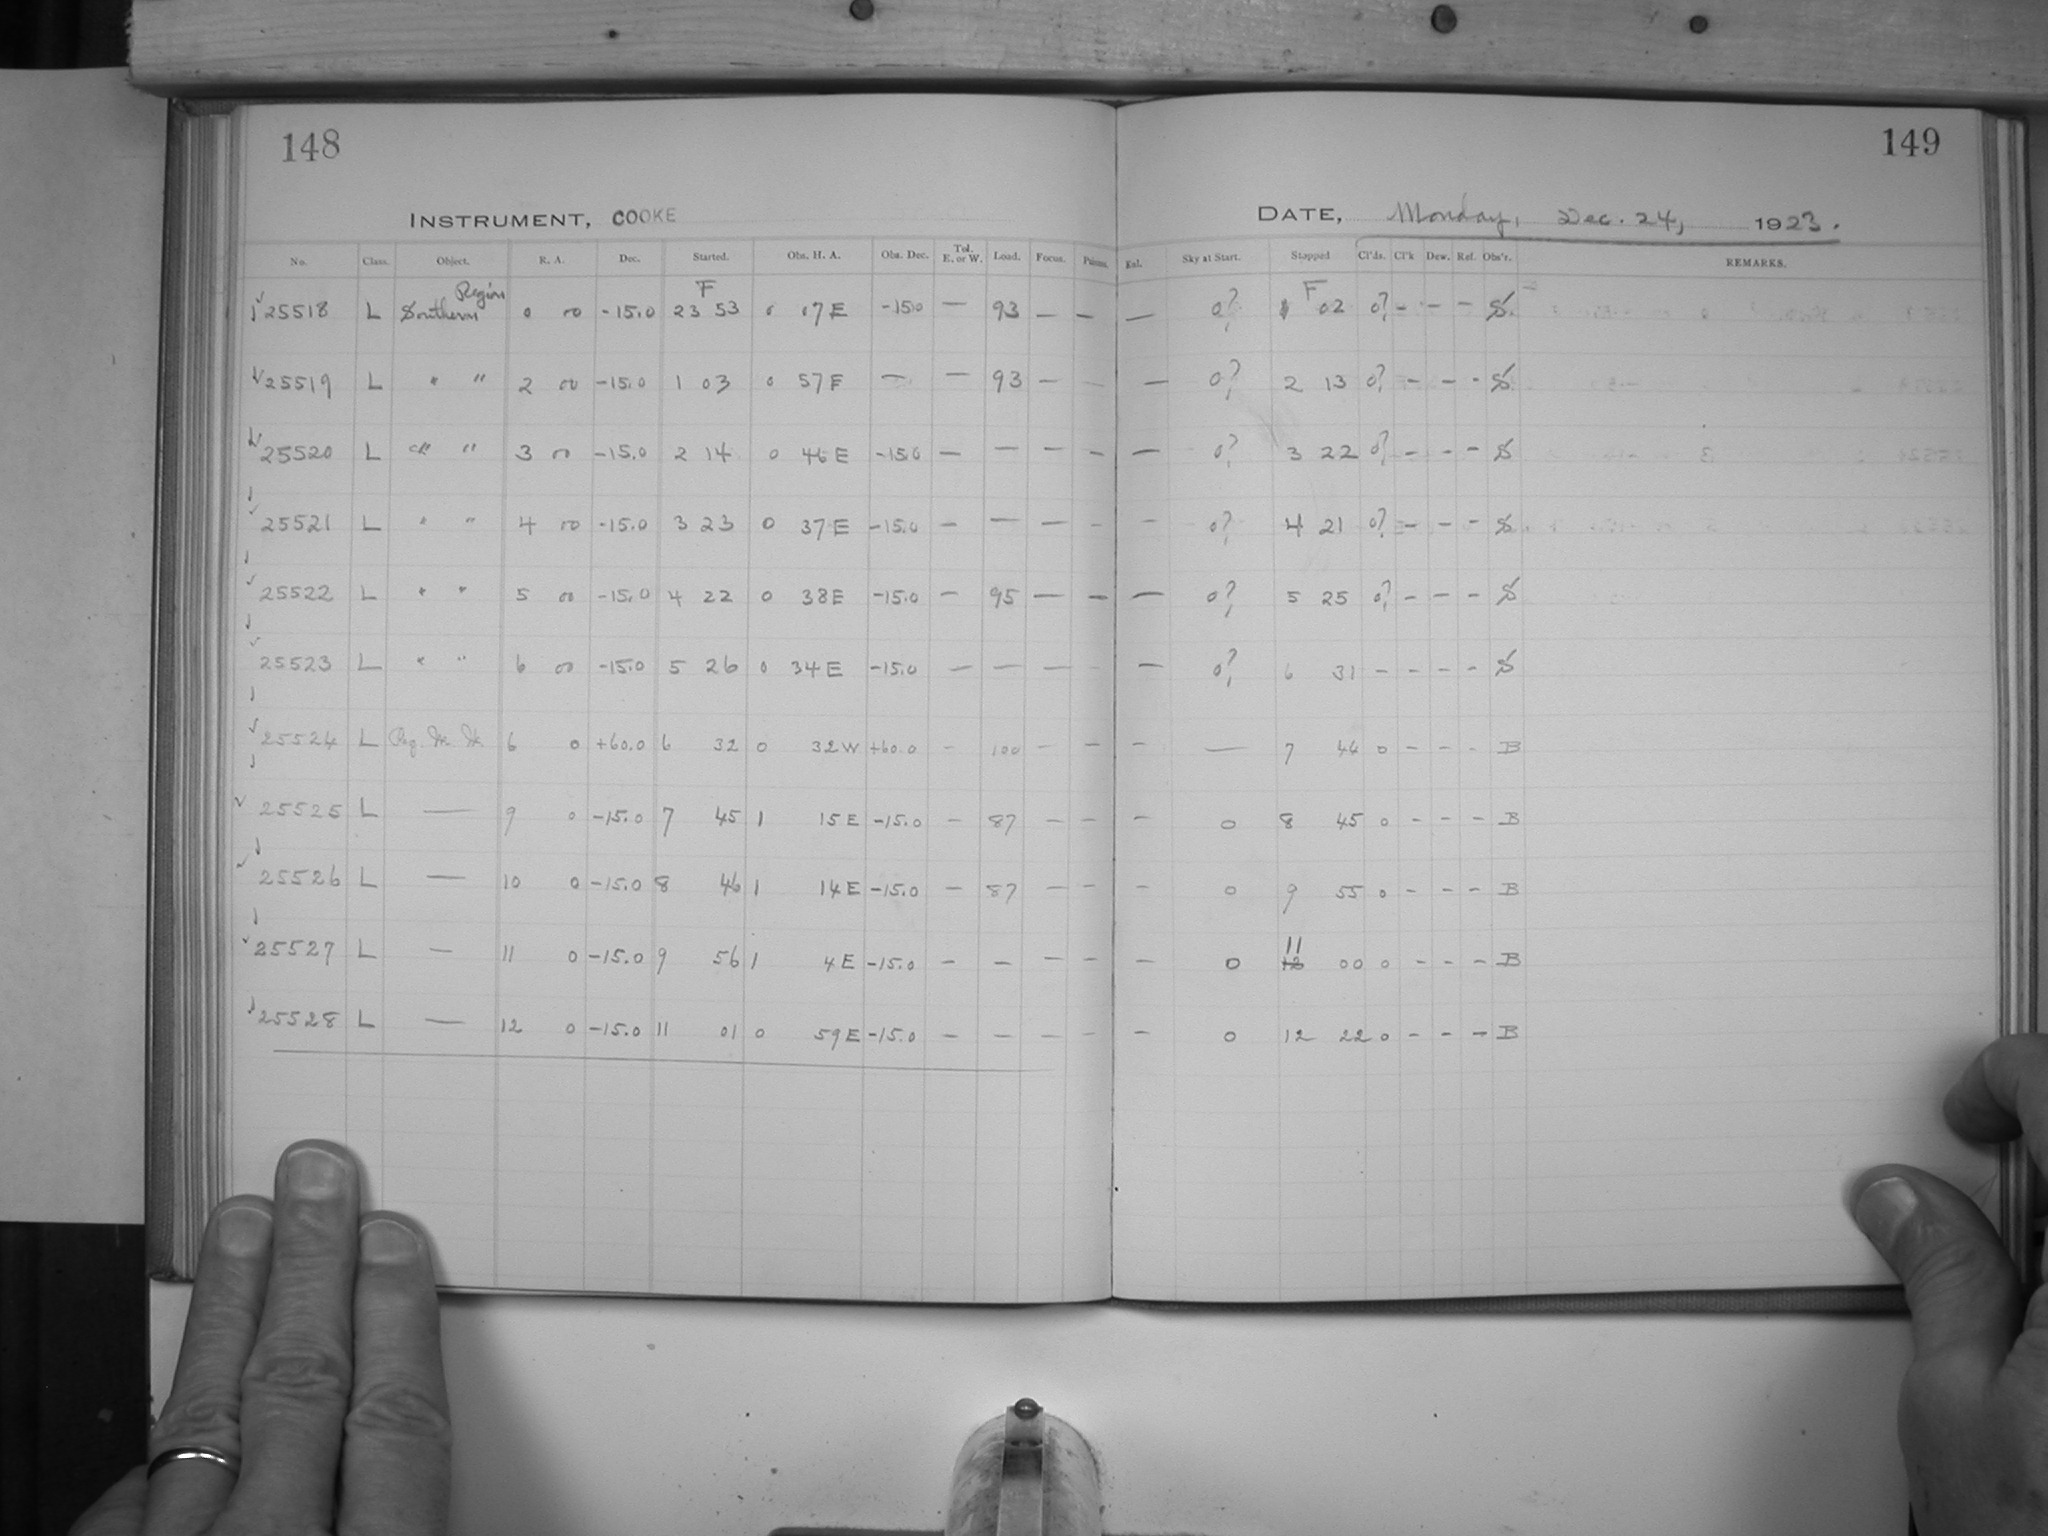 148
149
INSTRUMENT, COOKE
DATE, Monday, Dec. 24, 1923.
No. Class. Object. R. A. Dec. Started. Obs. H. A. Obs. Dec. Tel. E. or W. Load. Focus. Prisms. Kol. Sky at Start. Stopped Cl'ds. Cl'k Dew. Ref. Obs'r. REMARKS.
F F
25518 L Southern Region 0 00 -15.0 23 53 0 07 E -15.0 — 93 — — — 0? 1 02 0? - - - S
25519 L " " 2 00 -15.0 1 03 0 57 E — — 93 — — 0? 2 13 0? - - - S
25520 L " " 3 00 -15.0 2 14 0 46 E -15.0 — — — - — 0? 3 22 0? - - - S
25521 L " " 4 00 -15.0 3 23 0 37 E -15.0 — — — - — 0? 4 21 0? - - - S
25522 L " " 5 00 -15.0 4 22 0 38 E -15.0 — 95 — — — 0? 5 25 0? - - - S
25523 L " " 6 00 -15.0 5 26 0 34 E -15.0 — — — - — 0? 6 31 - - - - S
25524 L 6 0 +60.0 6 32 0 32 W +60.0 - 100 - - - — 7 44 0 - - - B
25525 L — 9 0 -15.0 7 45 1 15 E -15.0 - 87 - - - 0 8 45 0 - - - B
25526 L — 10 0 -15.0 8 46 1 14 E -15.0 - 87 - - - 0 9 55 0 - - - B
25527 L — 11 0 -15.0 9 56 1 4 E -15.0 - - - - - 0 11 00 0 - - - B
25528 L — 12 0 -15.0 11 01 0 59 E -15.0 - - - - - 0 12 22 0 - - - B